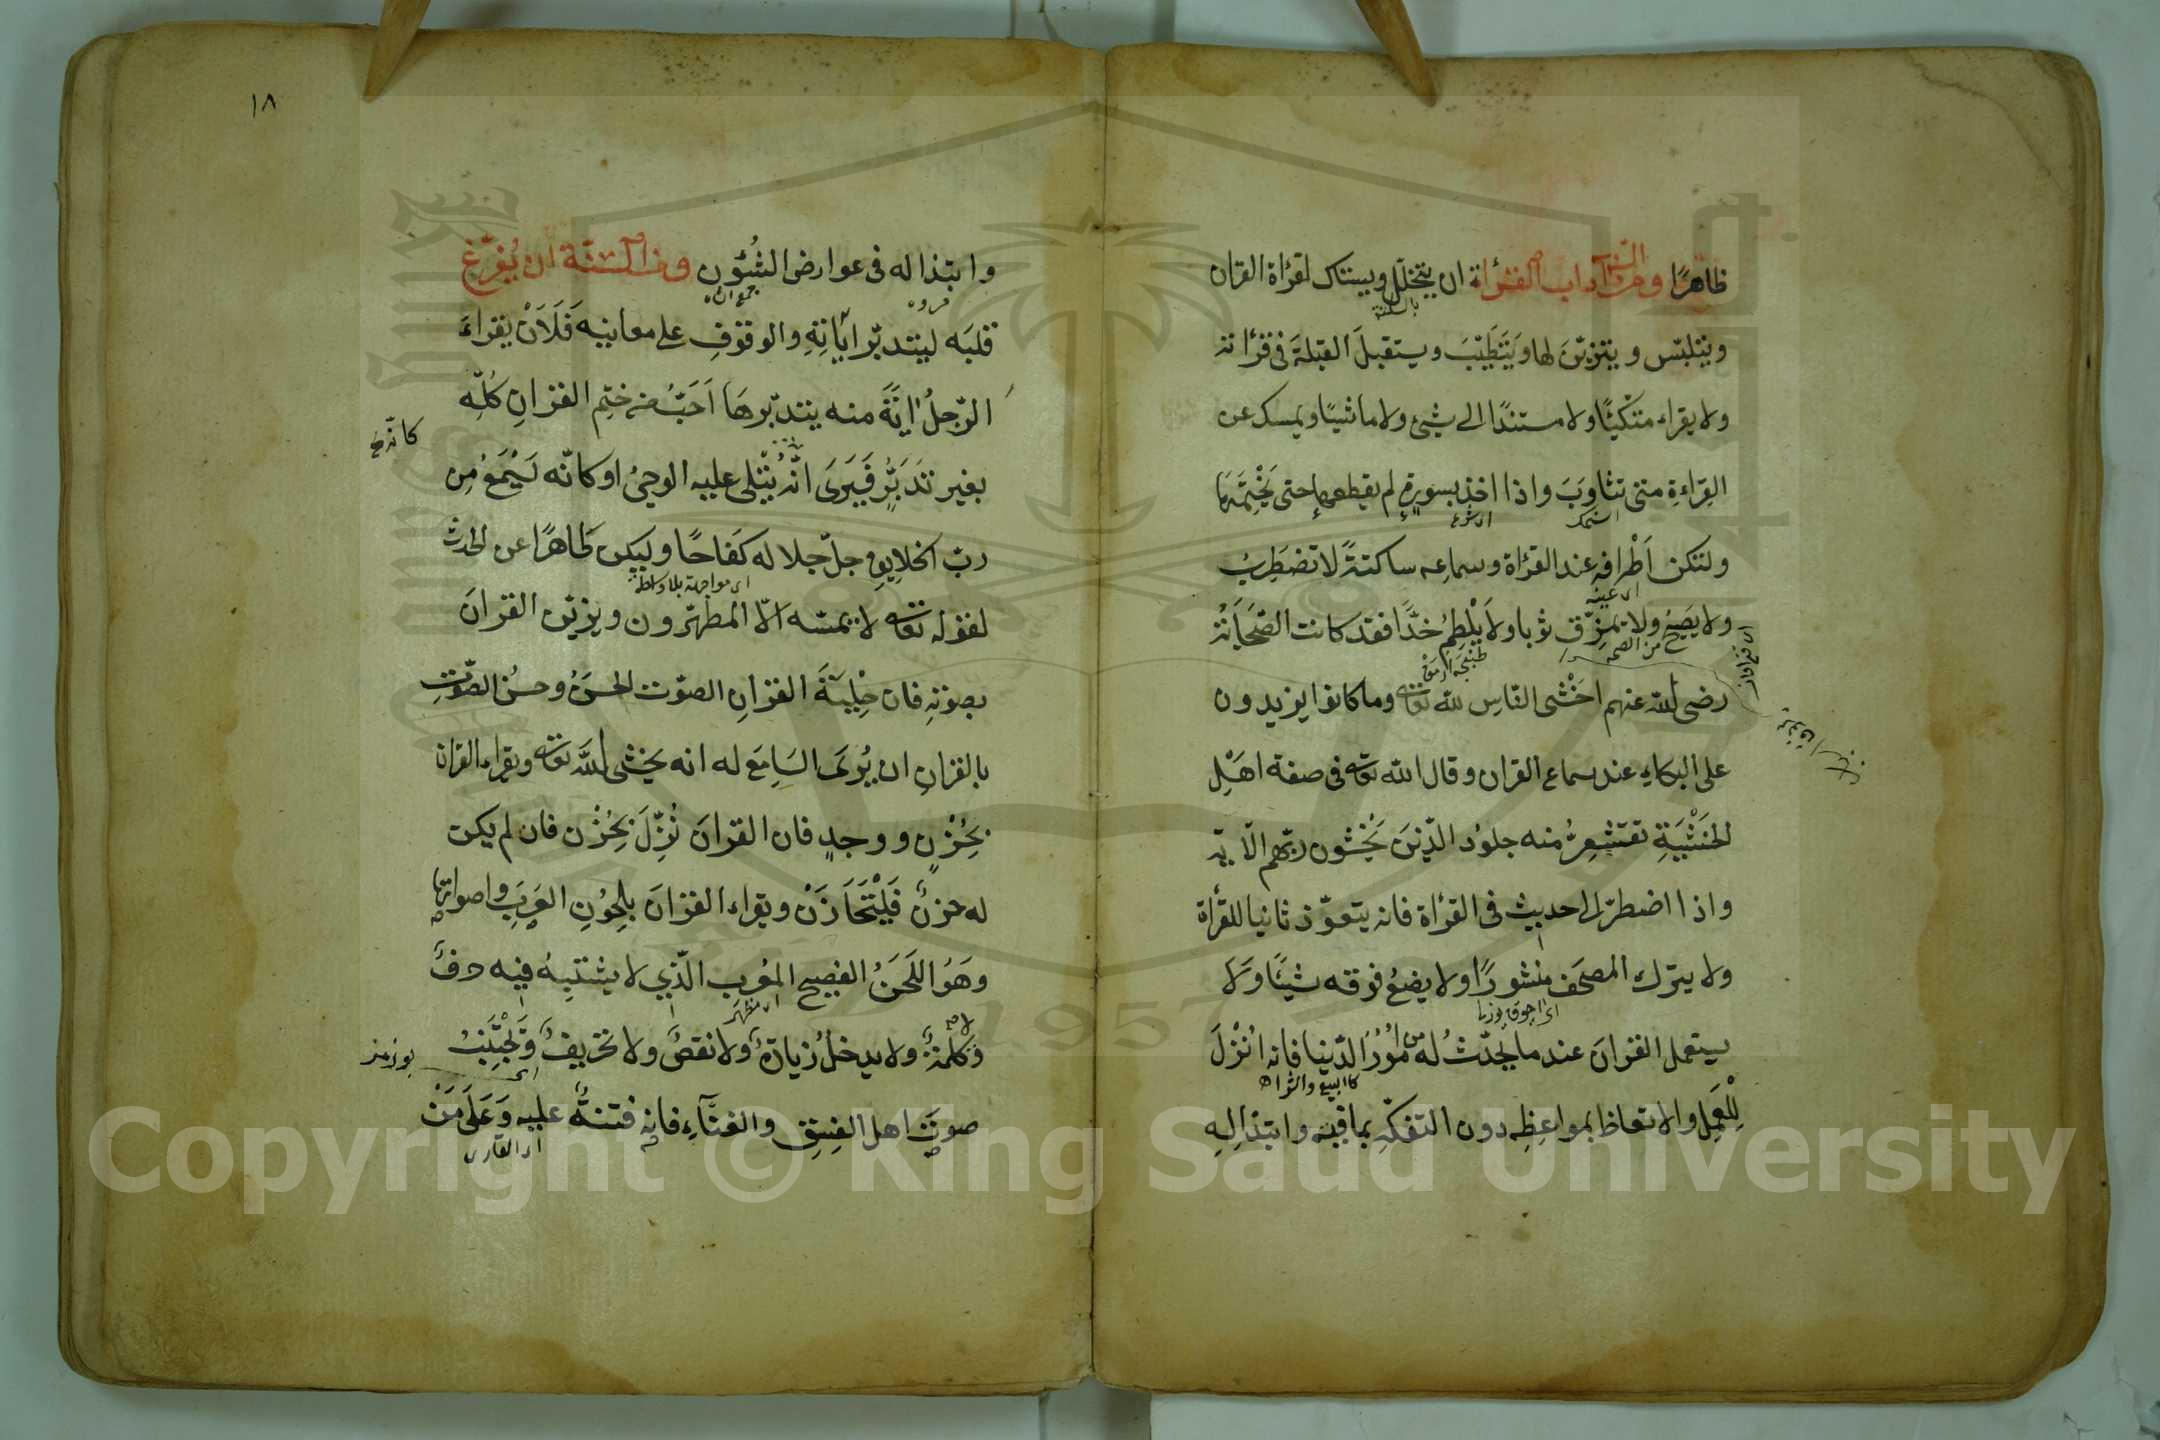 ظاهرًا ومن آداب القرأة ان يتخلّل ويستاك لقرأة القران
ويتلبّس ويتزيّن لها ويَتَطَيّبَ ويستقبلَ القبلةَ فى قرأته
ولا يقراء متكئًا ولا مستندًا الى شئ ولا ماشيًا ويمسك عن
القِراءةِ متى تثاوبَ واذا اخذ بسورةٍ لم يقطعها حتى يَخْتِمَهَا
ولتكن اَطْرافه عند القرأة وسماعه ساكنةً لا تضطَرِبُ
ولا يَصِيح ولا يمزّق ثوبا ولا يَلْطِمُ خدًّا فقد كانت الصّحَابَةُ
رضى الله عنهم اخْشى النّاسِ لله تعالى وما كانوا يزيدون
على البكاءِ عند سماع القران وقال الله تعالى فى صفة اهْلِ
الخَشْيَةِ تقشعِرُّ منه جلوُد الّذينَ يَخْشون ربّهم الآية
واذا اضطرّ الى حديث فى القرأة فانه يتعوّذ ثانيا للقرأة
ولا يترك المصحَف منشورًا ولا يضعُ فوقه شيئًا وَلا
يستعمل القرانَ عند ما يحدّثُ له من امُورُ الدّنيا فانه اُنْزلَ
لِلْعَمِل والاتعاظ بمواعِظِه دون التفكّهِ بما فيه وابتذالِهِ
١٨
وابتذاله فى عوارض الشُئُون ومن السّنّة ان يُفرّغ
قلبَه ليتدبّر اياتِهِ والوقوفِ على معانيه فَلَاَنْ يقراءَ
الرّجلُ اٰيَةً منه يتدبّرهَا اَحَبُّ من ختِم القرانِ كُلّه
بغير تَدَبّرٍ فَيَرَى انّه يُتْلى علَيه الوحىُ او كانّه يَسْمَعُ مِن
ربّ الخلايق جلّ جلاله كَفاحًا وليكن طَاهرًا عن الحدث
لقوله تعالى لا يمسّه الّا المطهّرون ويزيّن القرانَ
بصوتهِ فان حِلْيَةَ القرانِ الصّوت الحسَنُ وحسنُ الصّوتِ
بالقرانِ ان يُرىَ السَامِعَ له انه يخشى اللهَ تعالى ويقراء القران
بحُزْنٍ ووجدٍ فان القرانَ نُزّلَ بحُزْن فان لم يكن
له حزنٌ فَلْيَتَحَازَنْ ويقراء القرانَ بلحُونِ العَرَبِ واصواتها
وهَوُ اللَحَنُ الفصيح المعُرب الّذى لا يشتبِهُ فيه حرفٌ
وكلمةٌ ولا يدخلُ زيادةٌ ولا نقصٌ ولا تحريفٌ وَيَجْتَنِبُ
صوتَ اهل الفِسْقِ والغنآءِ فانه فتنةٌ عليه وَعَلَى مَنْ
Copyright © King Saud University
1957